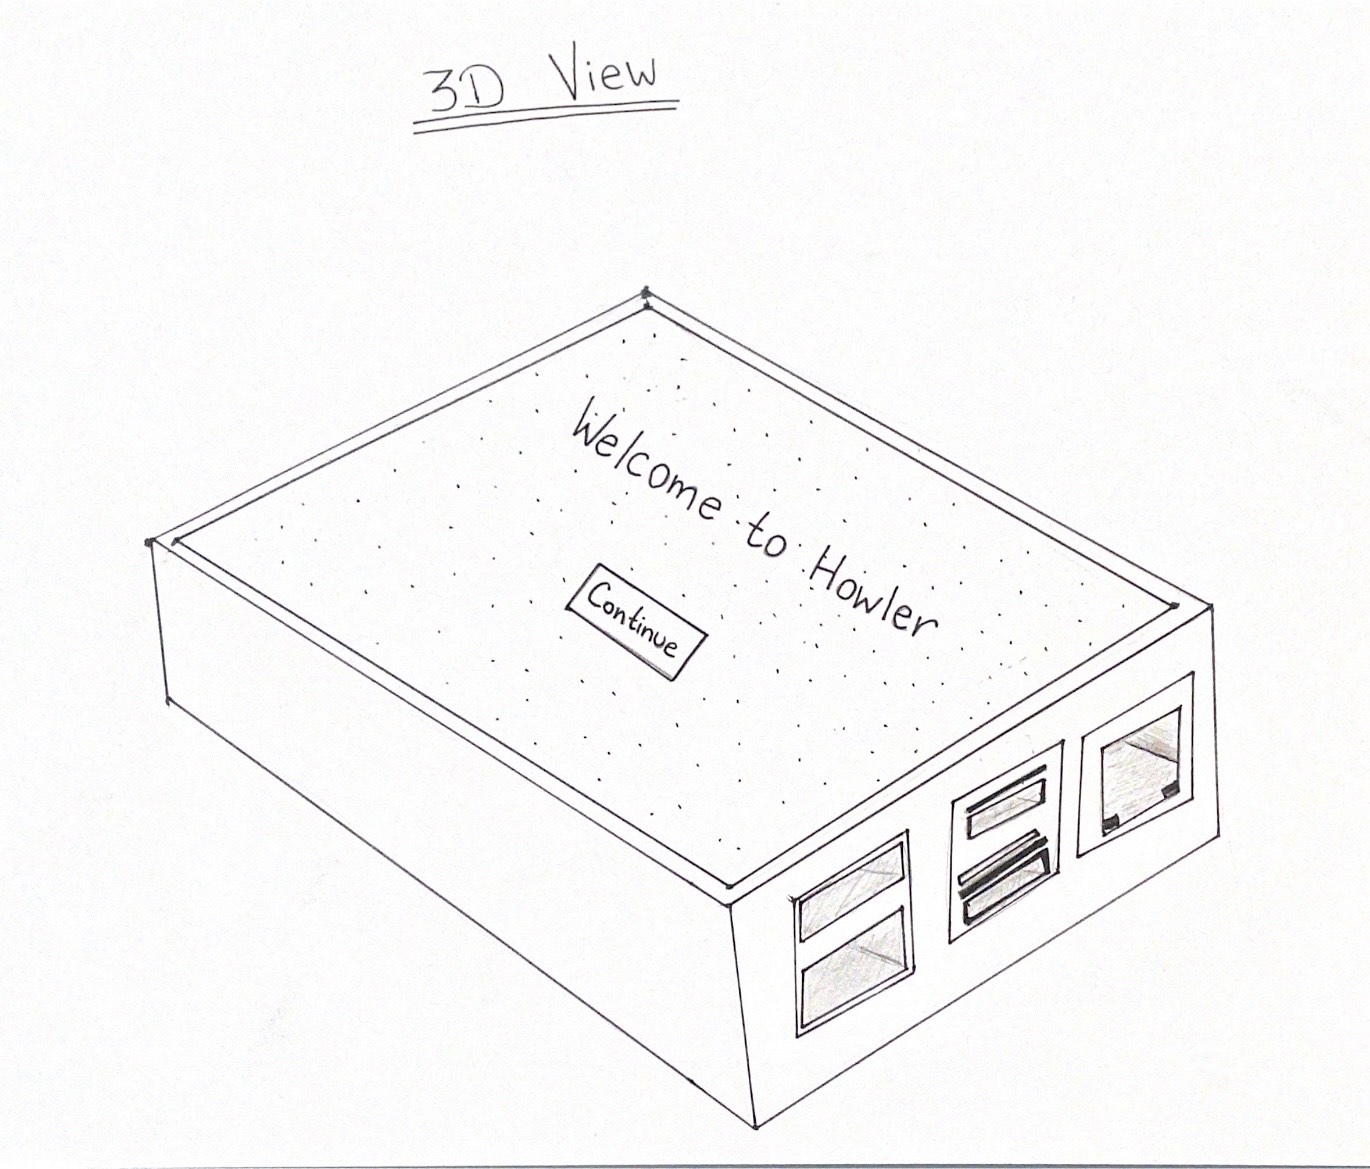 3D View
Welcome to Howler
Continue